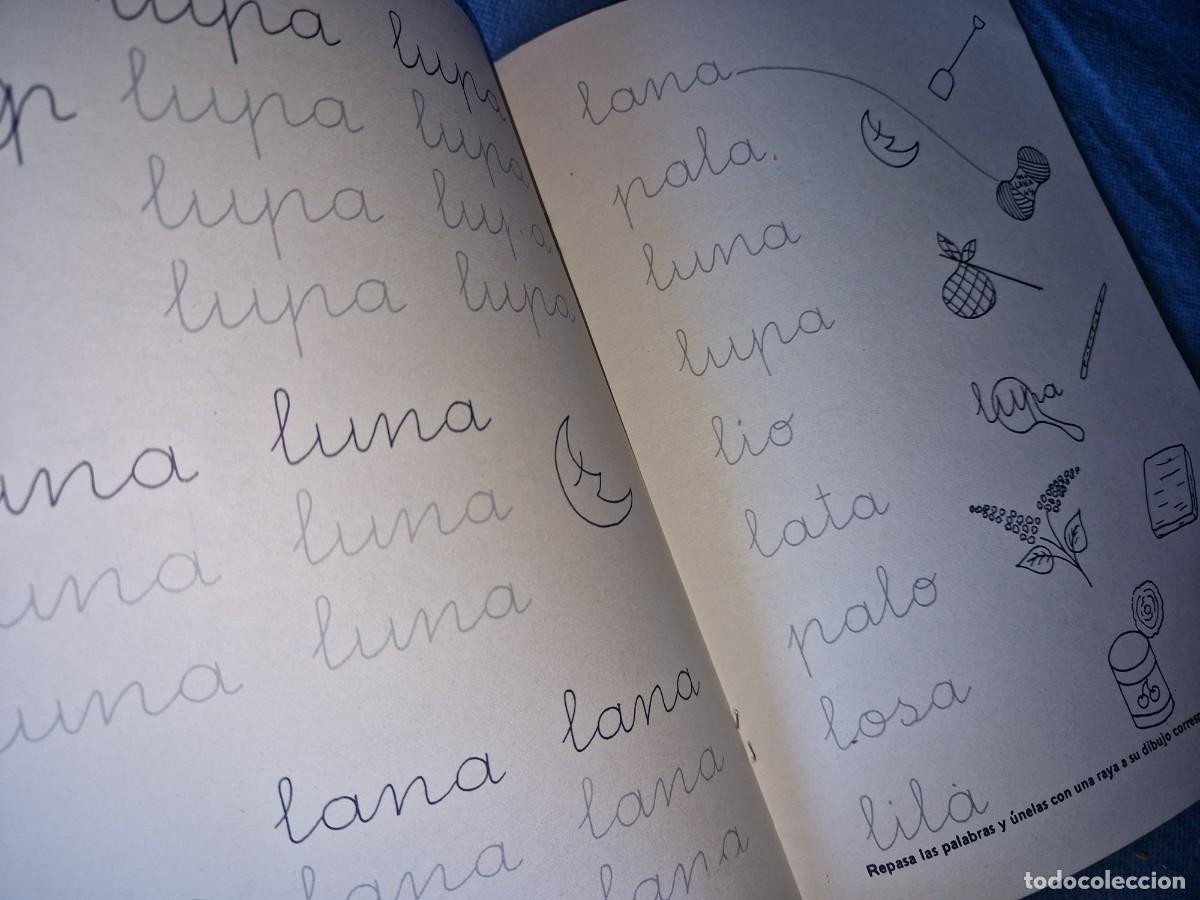 lupa lupa
lupa lupa
lupa lupa
lupa lupa
luna
luna
luna
lana lana
lana lana
lana lana
lana
pala.
luna
lupa
lio
lata
palo
losa
lila
LANA
lupa
Repasa las palabras y únelas con una raya a su dibujo
todocoleccion